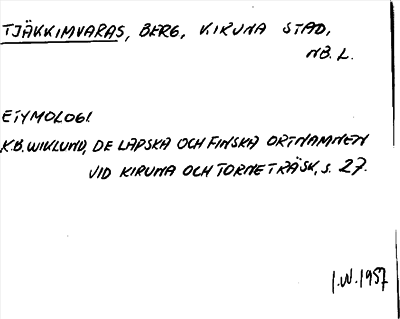 TJÄKKIMVARAS, BERG, KIRUNA STAD,
NB. L.
ETYMOLOGI
K.B. WIKLUND, DE LAPSKA OCH FINSKA ORTNAMNEN
VID KIRUNA OCH TORNETRÄSK, s. 27.
I.W. 1957